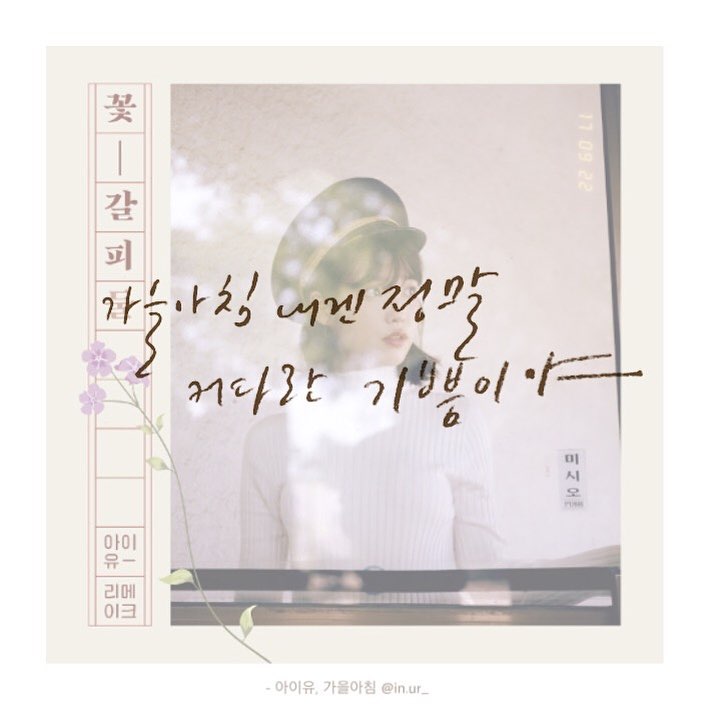 꽃
갈
피
둘
아이
유
리메
이크
17 09 22
가을아침 내겐 정말
커다란 기쁨이야
미시오
PUSH
- 아이유, 가을아침 @in.ur_